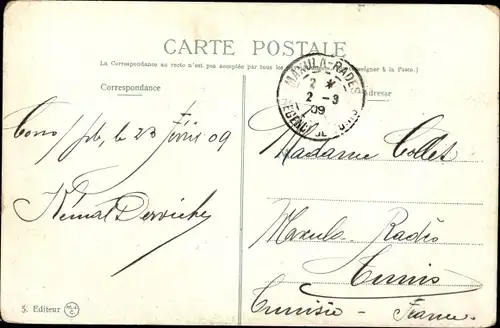 CARTE POSTALE
La Correspondance au recto n'est pas acceptée par tous les (Se renseigner à la Poste.)
Correspondance
Adresse
MAXULA-RADES
2 *
2 - 3
09
REGENCE DE TUNIS
23 Févr 09
Kémal Dervichy
Madame Collet
Maxula-Radès
Tunis
Tunisie - France
5. Editeur